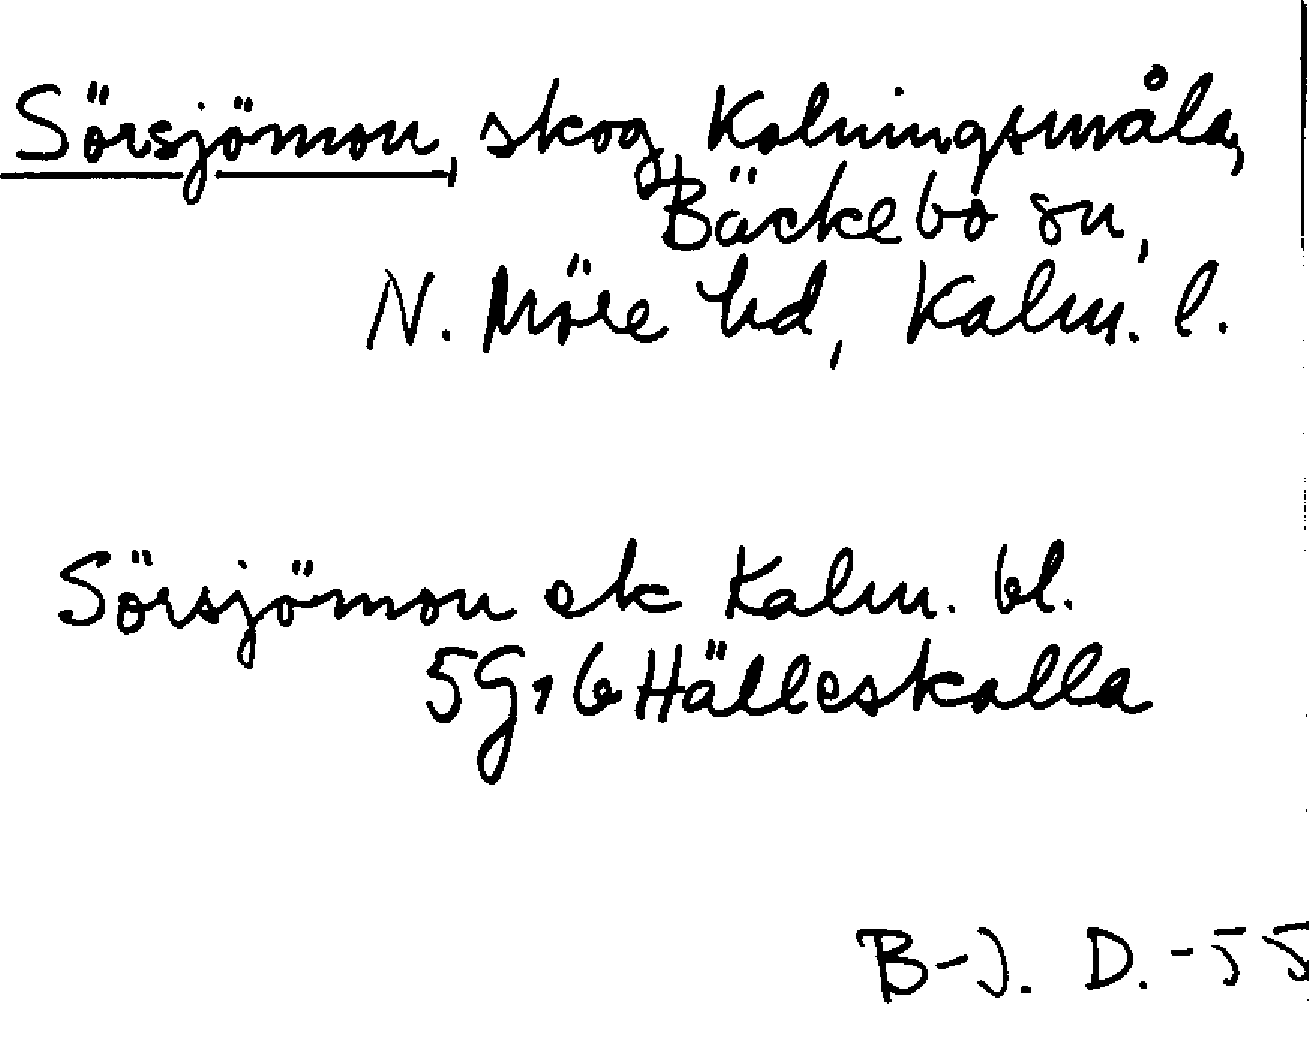 Sörsjömon, skog, Kalningsmåla,
Bäckebo sn,
N. Möre hd, Kalm. l.
Sörsjömon ek Kalm. bl.
5G, 6 Hälleskalla
B-J. D. -55